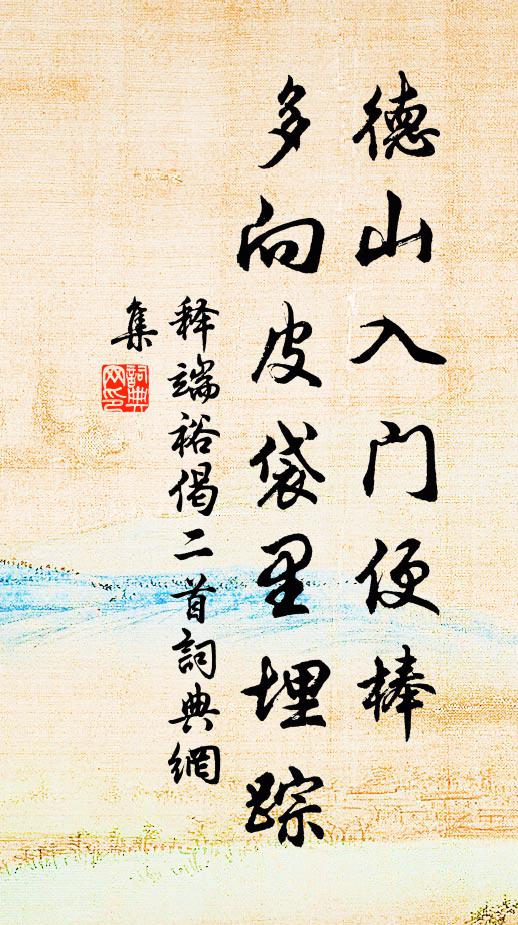 德山入门便棒
多向皮袋里埋踪
释端裕偈二首詞典網
集
詞典
网印